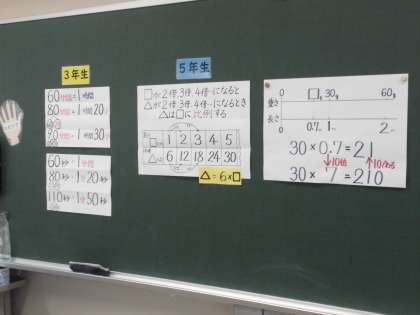 3年生
60分間=1時間
80分間=1時間20分
90分間=1時間30分
60秒=1分間
80秒=1分20秒
110秒=1分50秒
5年生
□が2倍、3倍、4倍…になると
△が2倍、3倍、4倍…になるとき
△は□に比例する
□ 1 2 3 4 5
△ 6 12 18 24 30
△=6×□
0 □g 30g 60g
重さ
長さ
0 0.7 1 2
30×0.7=21
↓10倍 ↑
30×7=210